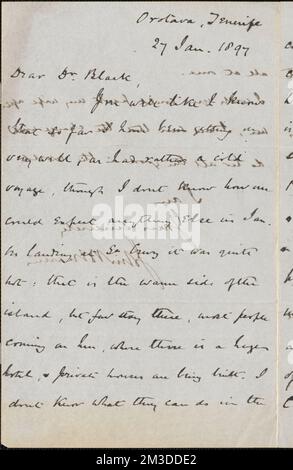 Orotava, Tenerife
27 Jan. 1897
Dear Dr. Black,
You will like I know
that so far I have been getting on
very well, as I had rather a cold
voyage, though I dont know how one
could expect anything else in Jan.
On landing at Sta Cruz it was quite
hot: that is the warm side of the
island, but few stay there, most people
coming on here, where there is a large
hotel, & private houses are being built. I
dont know what they can do in the
alamy
Image ID: 2M3DDE2
www.alamy.com